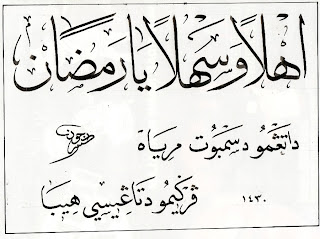 اهلاً وسهلاً يا رمضان
داتڠمو دسمبوت مرياه
ڤرݢيمو دتاڠيسي هيبا
١٤٣٠